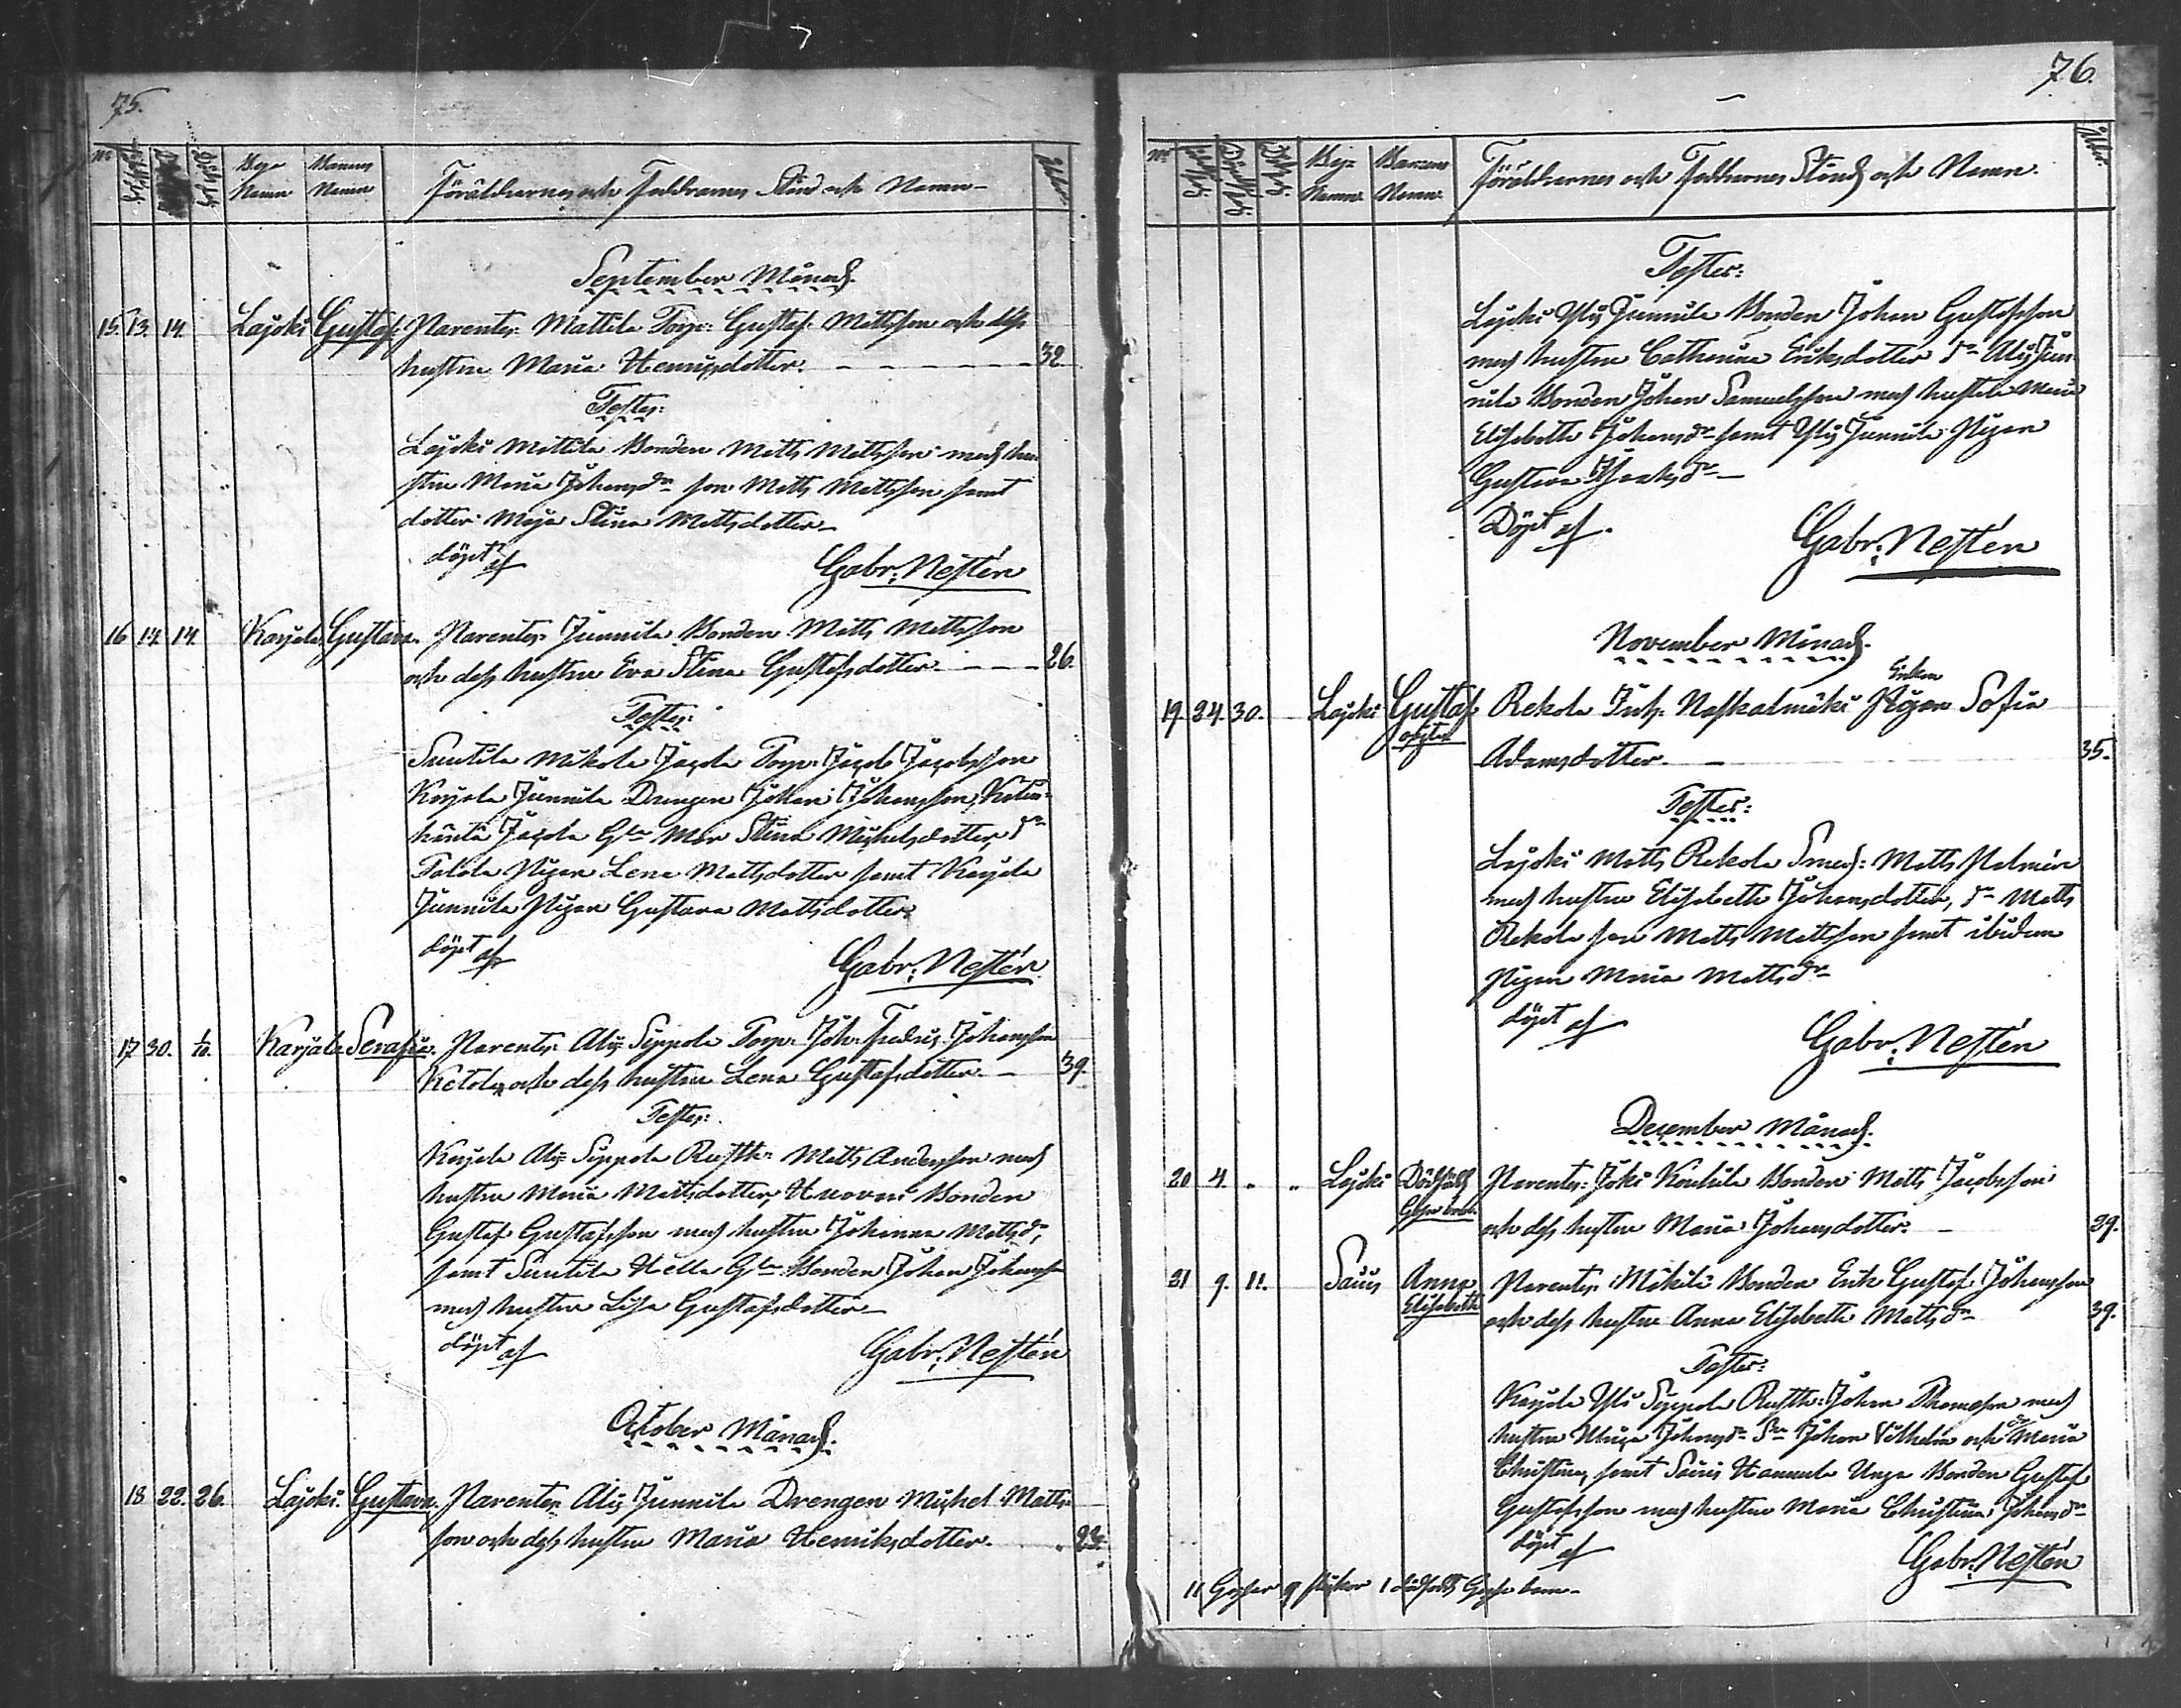 75.
No
Bya Namn
Barnens Namn
Föräldrarnes och Faddrarnes Stånd och Namn
Ålder
September Månad.
15. 13. 14. Lajoki Gustaf. Parentes: Mattila Torp: Gustaf Mattsson och dess
hustru Maria Henriksdotter. 32.
Testes:
Lajoki Mattila Bonden Matts Mattsson med hu-
stru Maria Johansdr son Matts Mattsson samt
dotter Maja Stina Mattsdotter
döpt af Gabr: Nestén
16 14. 14. Karjala Gustava. Parentes: Junnila Bonden Matts Mattsson
och dess hustru Eva Stina Gustafsdotter. 26.
Testes:
Suutila Mikola Jacola Torp: Jacob Jacobsson
Karjala Junnila Drengen Johan Johansson,
Jacola Mor Stina Michelsdotter, dn
Talola Pigan Lena Mattsdotter samt Karjala
Junnila Pigan Gustava Mattsdotter.
döpt af Gabr: Nestén
17 30. 1/10. Karjala Serafia. Parentes: Ali Seppola Torp: Joh: Fredric Johansson
Ketola, och dess hustru Lena Gustafsdotter. 39.
Testes:
Karjala Ali Seppola Rusth: Matts Andersson med
hustru Maria Mattsdotter, Huovari Bonden
Gustaf Gustafsson med hustru Johanna Mattsdr,
samt Suutila Hella Gla Bonden Johan Johansson
med hustru Lisa Gustafsdotter
döpt af Gabr: Nestén
October Månad.
18 22. 26. Lajoki. Gustava. Parentes: Ali Junnila Drengen Michel Matts-
son och dess hustru Maria Henriksdotter. 23.
76.
No
Bya Namn.
Barnens Namn.
Föräldrarnes och Faddrarnes Stånd och Namn.
Ålder
Testes:
Lajoki Yli Junnila Bonden Johan Gustafsson
med hustru Catharina Eriksdotter dn Ali Jun-
nila Bonden Johan Samuelsson med hustru Maria
Elisabetha Johansdr samt Yli Junnila Pigan
Gustava Isaksdr
Döpt af. Gabr: Nestén
November Månad.
Enkan
19. 24. 30. Lajoki Gustaf Rekola Inh: Naskalmäki Pigan Sofia
oägta
Adamsdotter. 35.
Testes:
Lajoki Matts Rekola Smed: Matts Palmén
med hustru Elisabetha Johansdotter, dn Matts
Rekola son Matts Mattsson samt ibidem
Pigan Maria Mattsdr
döpt af Gabr: Nestén
December Månad.
20 4. " " Lajoki Dödfödt Parentes: Joki Bonden Matts Jacobsson
Gosse barn.
och dess hustru Maria Johansdotter. 29.
21 9. 11. Sauis Anna Parentes: Mikila Bonden Erik Gustaf Johansson
Elisabetha
och dess hustru Anna Elisabetha Mattsdr 39.
Testes:
Karjala Yli Seppola Rusth: Johan Thomasson med
hustru Ulrica Johansdr Sn Johan Vilhelm och dr Maria
Christina, samt Sauis Hannula Unga Bonden Gustaf
Gustafsson med hustru Maria Christina Johansdr
döpt af Gabr: Nestén
11 Gossar 9 flickor 1 dödfödt Gosse barn.